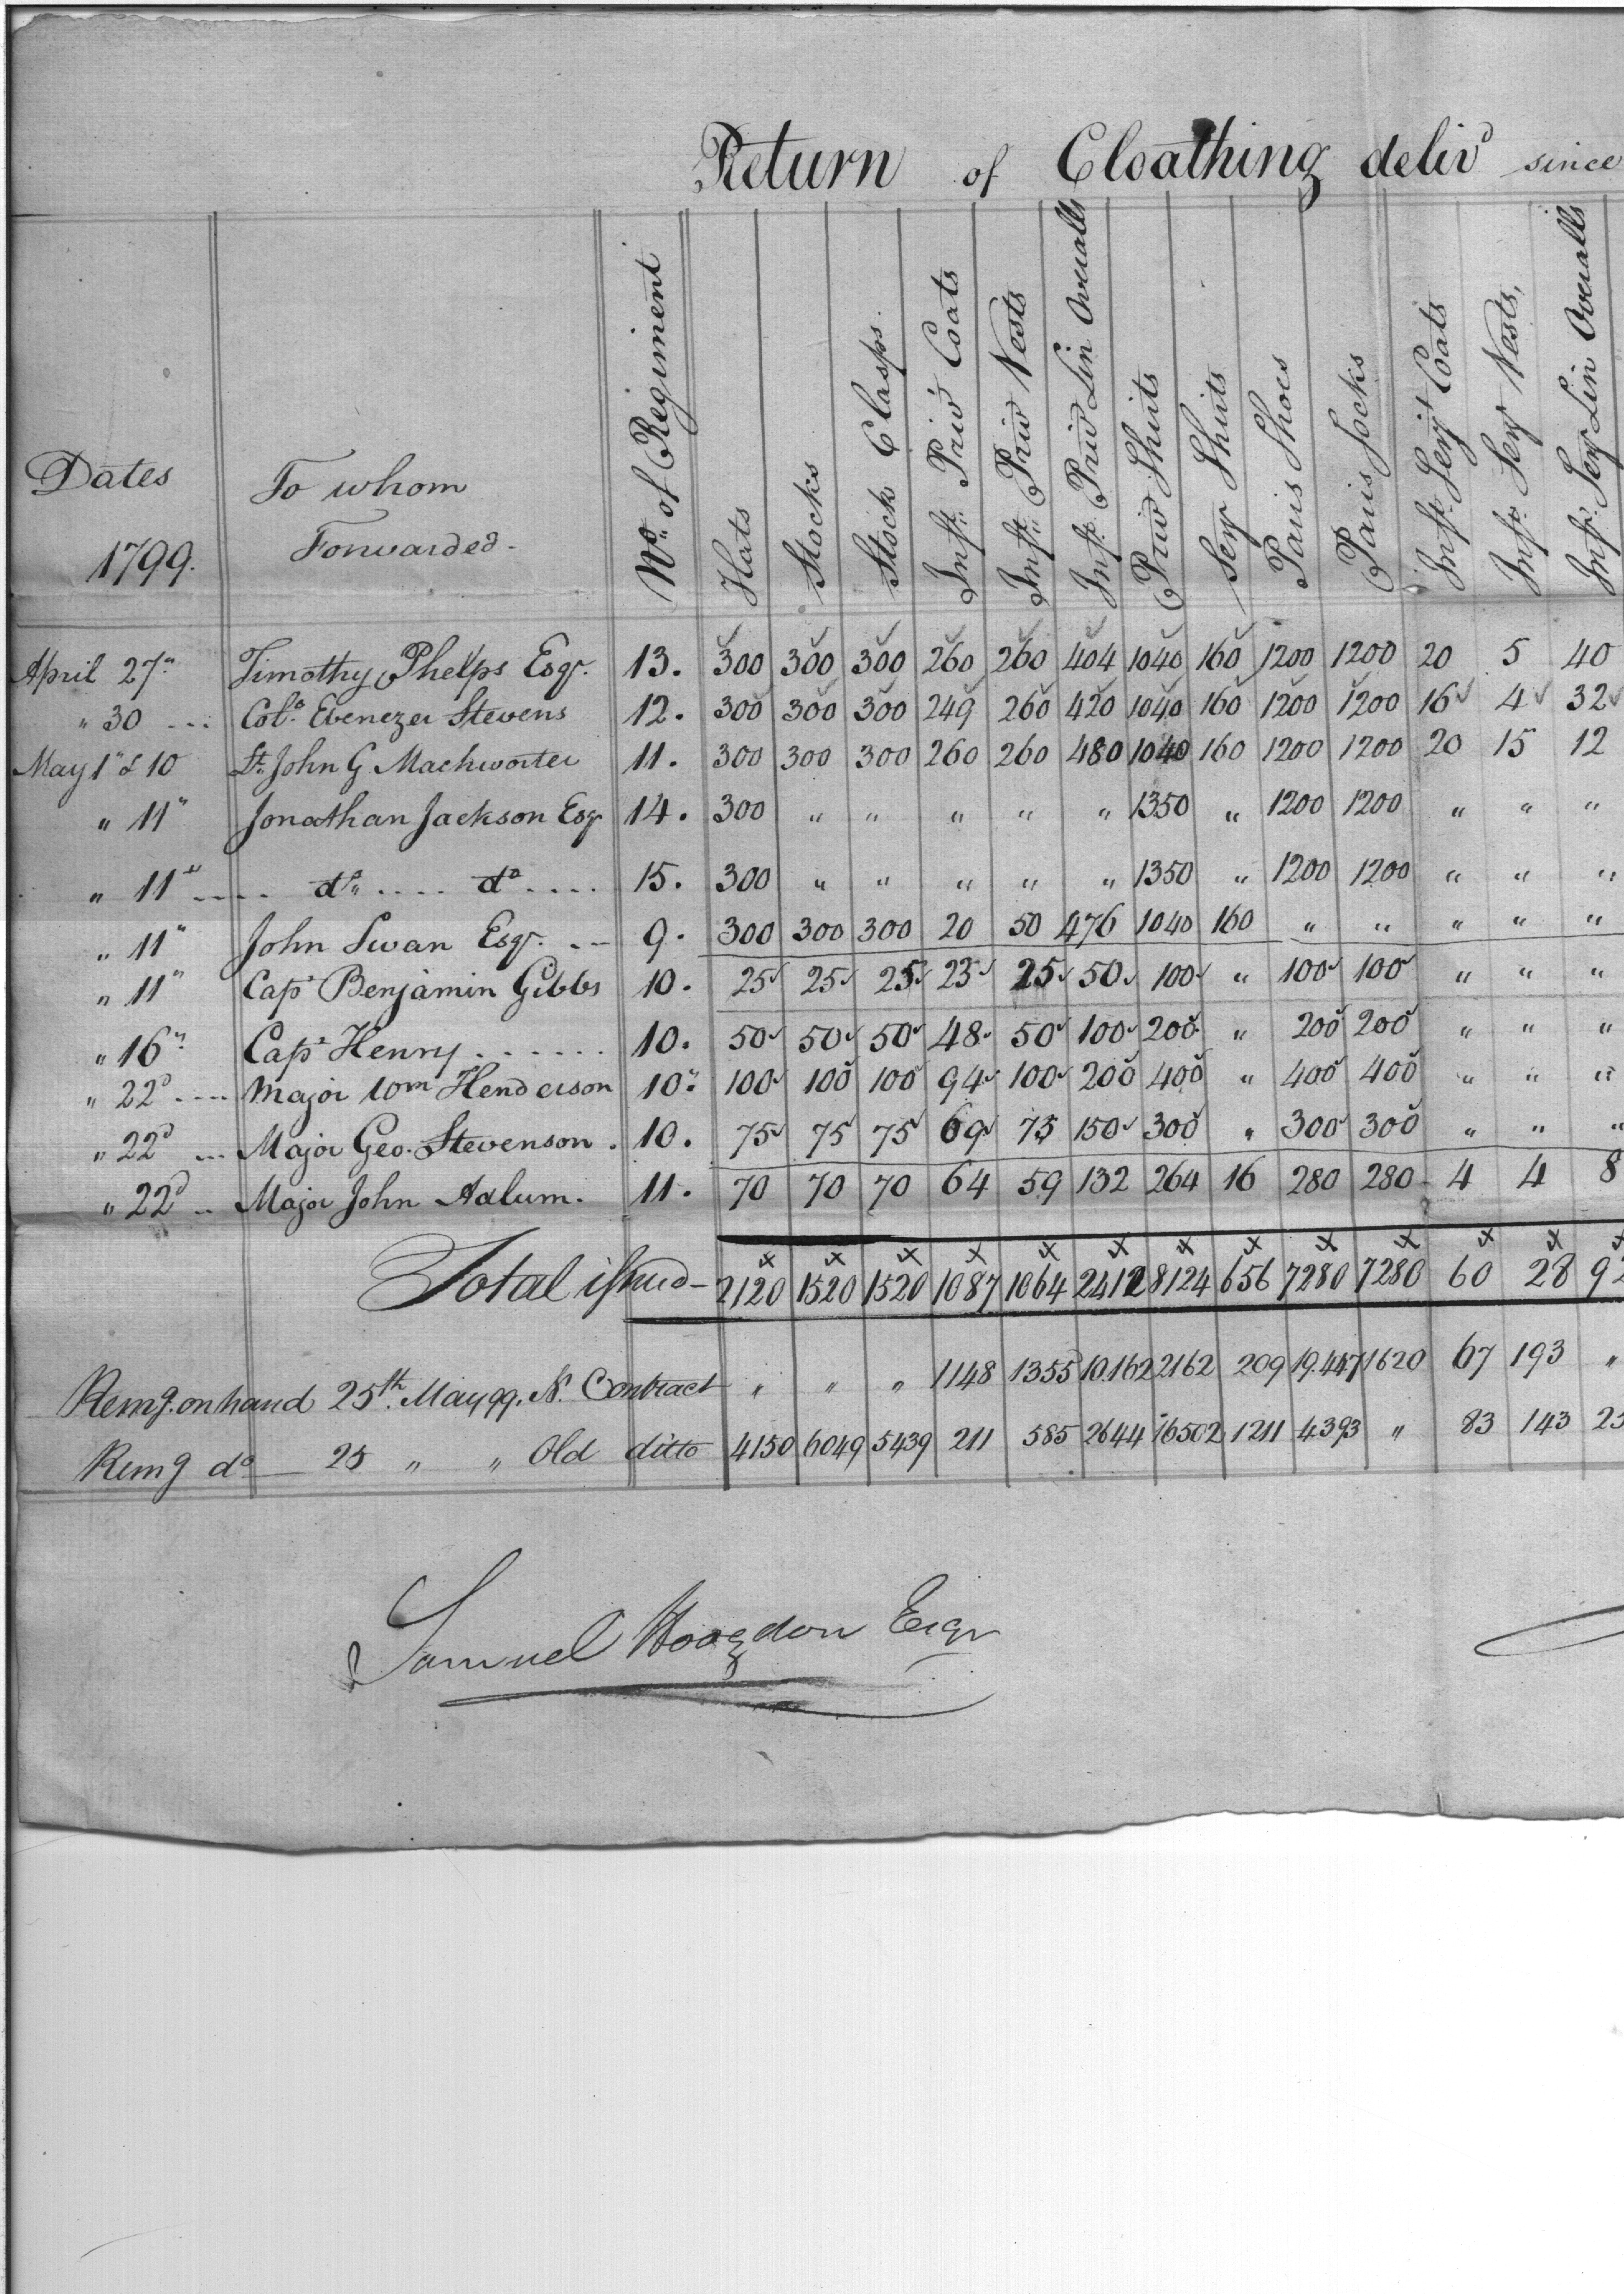 Return of Cloathing deliv<sup>d</sup> since
Dates 1799. | To whom Forwarded - | N<sup>o</sup> of Regiment | Hats | Stocks | Stock Clasps. | Inf<sup>y</sup> Priv<sup>t</sup> Coats | Inf<sup>y</sup> Priv<sup>t</sup> Vests | Inf<sup>y</sup> Priv<sup>t</sup> Lin Overalls | Priv<sup>t</sup> Shirts | Serj Shirts | Pairs Shoes | Pairs Socks | Inf<sup>y</sup> Serj<sup>t</sup> Coats | Inf<sup>y</sup> Serj Vests, | Inf<sup>y</sup> Serj Lin Overalls
April 27" | Timothy Phelps Esqr. | 13. | 300 | 300 | 300 | 260 | 260 | 404 | 1040 | 160 | 1200 | 1200 | 20 | 5 | 40
" 30 --- | Col<sup>o</sup>. Ebenezer Stevens | 12. | 300 | 300 | 300 | 249 | 260 | 420 | 1040 | 160 | 1200 | 1200 | 16 | 4 | 32
May 1" & 10 | Lt. John G Mackworter | 11. | 300 | 300 | 300 | 260 | 260 | 480 | 1040 | 160 | 1200 | 1200 | 20 | 15 | 12
" 11" | Jonathan Jackson Esqr | 14. | 300 | " | " | " | " | " | 1350 | " | 1200 | 1200 | " | " | "
" 11" ---- | d<sup>o</sup> .... d<sup>o</sup> .... | 15. | 300 | " | " | " | " | " | 1350 | " | 1200 | 1200 | " | " | "
" 11" | John Swan Esqr. -- | 9. | 300 | 300 | 300 | 20 | 50 | 476 | 1040 | 160 | " | " | " | " | "
" 11" | Cap<sup>t</sup> Benjamin Gibbs | 10. | 25 | 25 | 25 | 23 | 25 | 50 | 100 | " | 100 | 100 | " | " | "
" 16" | Cap<sup>t</sup> Henry ...... | 10. | 50 | 50 | 50 | 48 | 50 | 100 | 200 | " | 200 | 200 | " | " | "
" 22<sup>d</sup> ---- | Major Wm Henderson | 10" | 100 | 100 | 100 | 94 | 100 | 200 | 400 | " | 400 | 400 | " | " | "
" 22<sup>d</sup> --- | Major Geo. Stevenson . | 10. | 75 | 75 | 75 | 69 | 75 | 150 | 300 | " | 300 | 300 | " | " | "
" 22<sup>d</sup> -- | Major John Adlum. | 11. | 70 | 70 | 70 | 64 | 59 | 132 | 264 | 16 | 280 | 280 | 4 | 4 | 8
Total issued - | 2120 | 1520 | 1520 | 1087 | 1064 | 2412 | 8124 | 656 | 7280 | 7280 | 60 | 28 | 92
Remg. on hand 25<sup>th</sup>. May 99. N. Contract | " | " | " | 1148 | 1355 | 10.162 | 2162 | 209 | 19.447 | 1620 | 67 | 193 | "
Remg d<sup>o</sup> — 25 " " Old ditto | 4150 | 6049 | 5439 | 211 | 585 | 2644 | 16502 | 1211 | 4393 | " | 83 | 143 | 23
Samuel Hodgdon Esqr